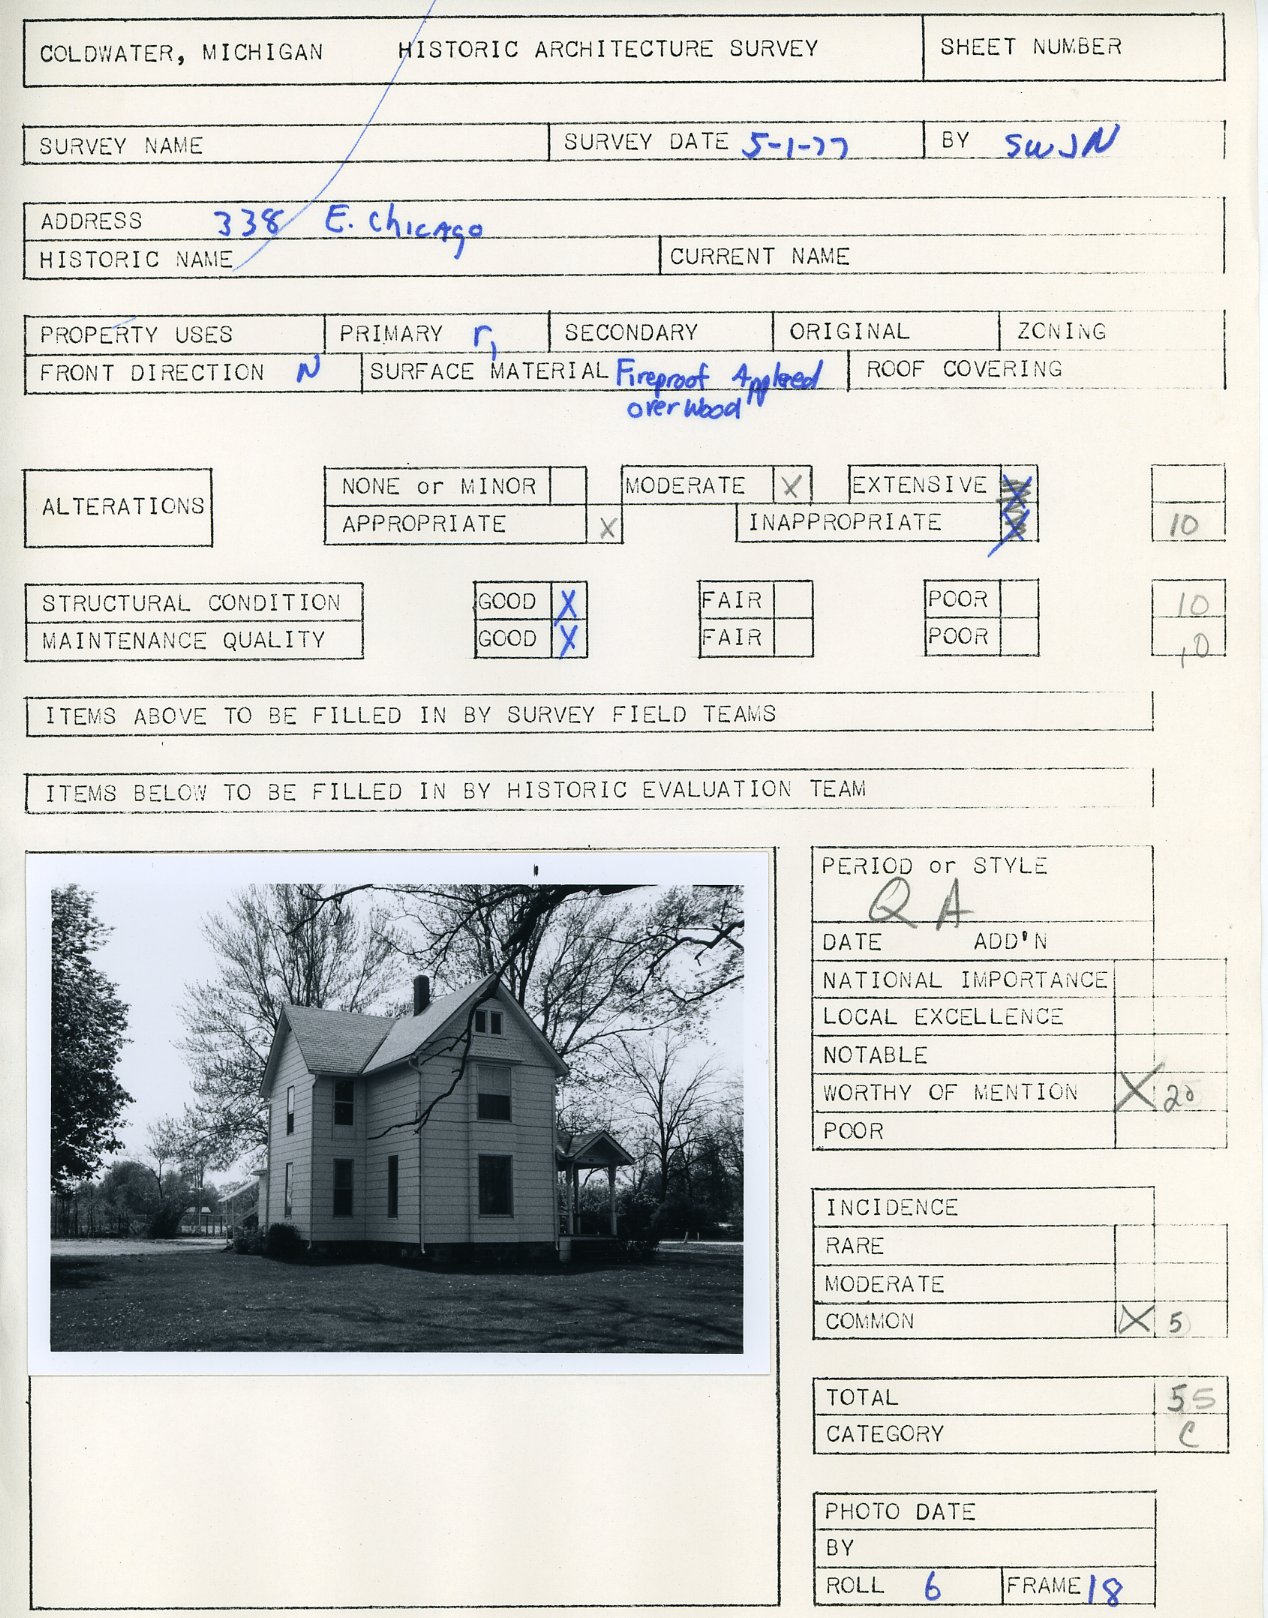 COLDWATER, MICHIGAN HISTORIC ARCHITECTURE SURVEY SHEET NUMBER
SURVEY NAME SURVEY DATE 5-1-77 BY SWJN
ADDRESS 338 E. Chicago
HISTORIC NAME CURRENT NAME
PROPERTY USES PRIMARY r, SECONDARY ORIGINAL ZONING
FRONT DIRECTION N SURFACE MATERIAL Fireproof Appleed ROOF COVERING
over Wood
ALTERATIONS
NONE or MINOR MODERATE X EXTENSIVE X
APPROPRIATE X INAPPROPRIATE X 10
STRUCTURAL CONDITION GOOD X FAIR POOR 10
MAINTENANCE QUALITY GOOD X FAIR POOR 10
ITEMS ABOVE TO BE FILLED IN BY SURVEY FIELD TEAMS
ITEMS BELOW TO BE FILLED IN BY HISTORIC EVALUATION TEAM
PERIOD or STYLE
QA
DATE ADD'N
NATIONAL IMPORTANCE
LOCAL EXCELLENCE
NOTABLE
WORTHY OF MENTION X 20
POOR
INCIDENCE
RARE
MODERATE
COMMON X 5
TOTAL 55
CATEGORY C
PHOTO DATE
BY
ROLL 6 FRAME 18